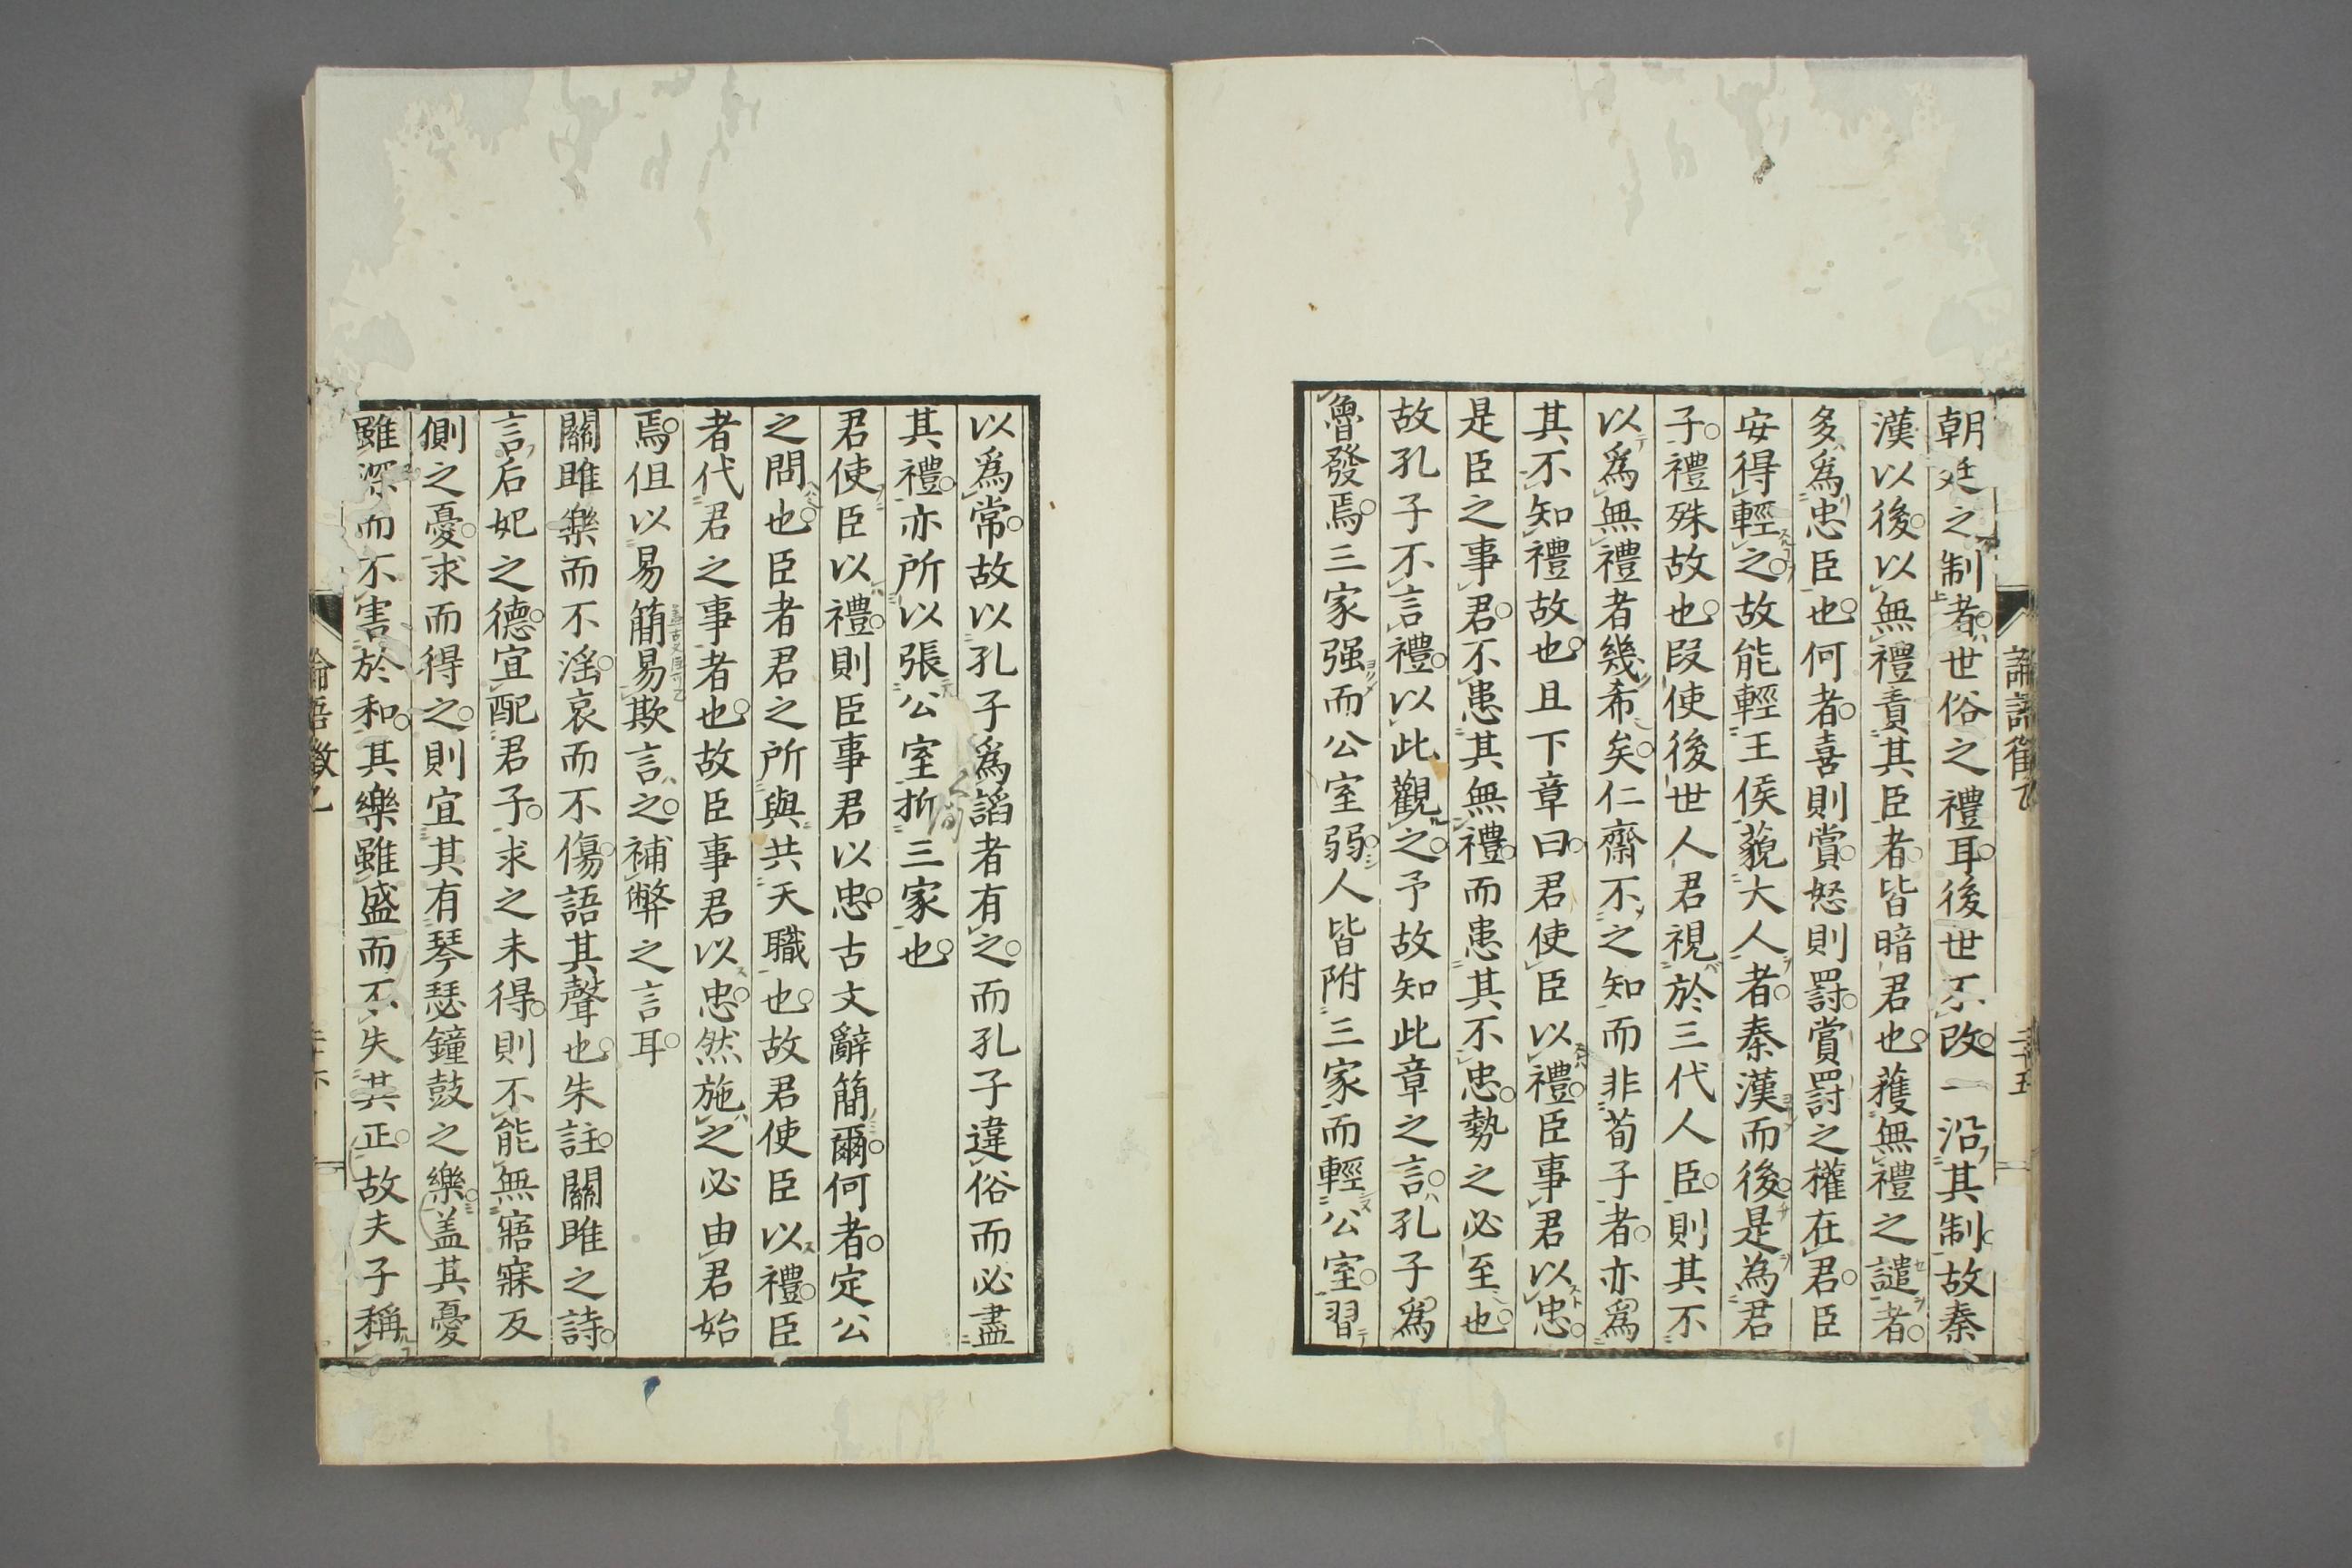 朝廷之制者世俗之禮耳後世不改一沿其制故秦
漢以後以無禮責其臣者皆暗君也獲無禮之譴者
多爲忠臣也何者喜則賞怒則罸賞罸之權在君臣
安得輕之故能輕王侯藐大人者秦漢而後是為君
子禮殊故也叚使後世人君視於三代人臣則其不
以爲無禮者幾希矣仁齋不之知而非荀子者亦爲
其不知禮故也且下章曰君使臣以禮臣事君以忠
是臣之事君不患其無禮而患其不忠勢之必至也
故孔子不言禮以此觀之予故知此章之言孔子爲
魯發焉三家强而公室弱人皆附三家而輕公室習
以爲常故以孔子爲謟者有之而孔子違俗而必盡
其禮亦所以張公室折三家也
君使臣以禮則臣事君以忠古文辭簡爾何者定公
之問也臣者君之所與共天職也故君使臣以禮臣
者代君之事者也故臣事君以忠然施之必由君始
焉但以易簡易欺言之補弊之言耳
關雎樂而不淫哀而不傷語其聲也朱註關雎之詩
言后妃之德宜配君子求之未得則不能無寤寐反
側之憂求而得之則宜其有琴瑟鐘鼓之樂盖其憂
雖深而不害於和其樂雖盛而不失其正故夫子稱